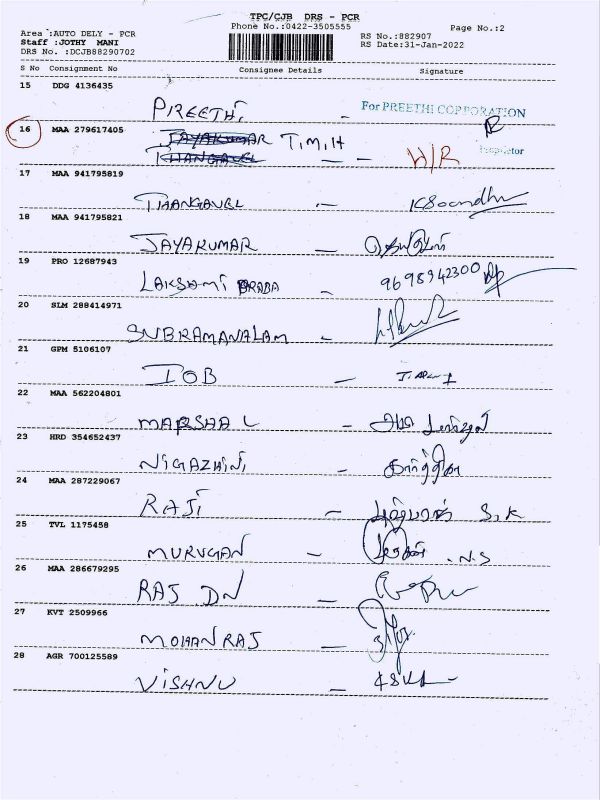 TPC/CJB DRS - PCR
Area :AUTO DELY - PCR Phone No.:0422-3505555 Page No.:2
Staff :JOTHY MANI RS No.:882907
DRS No. :DCJB88290702 RS Date:31-Jan-2022
S No Consignment No Consignee Details Signature
15 DDG 4136435
PIREETHI, - For PREETHI CORPORATION
16 MAA 279617405 JAYAKUMAR T.M.H Proprietor
THANGAVEL - - H/R
17 MAA 941795819
THANGAVEL -
18 MAA 941795821
JAYAKUMAR -
19 PRO 12687943
LAKSHMI PRABA - 9698942300
20 SLM 288414971
SUBRAMANALAM -
21 GPM 5106107
IOB -
22 MAA 562204801
MARSHAL -
23 HRD 354652437
NIGAZHINI -
24 MAA 287229067
RAJI - S.K
25 TVL 1175458
MURUGAN - N.S
26 MAA 286679295
RAJ DN -
27 KVT 2509966
MOHANRAJ -
28 AGR 700125589
VISHNU -